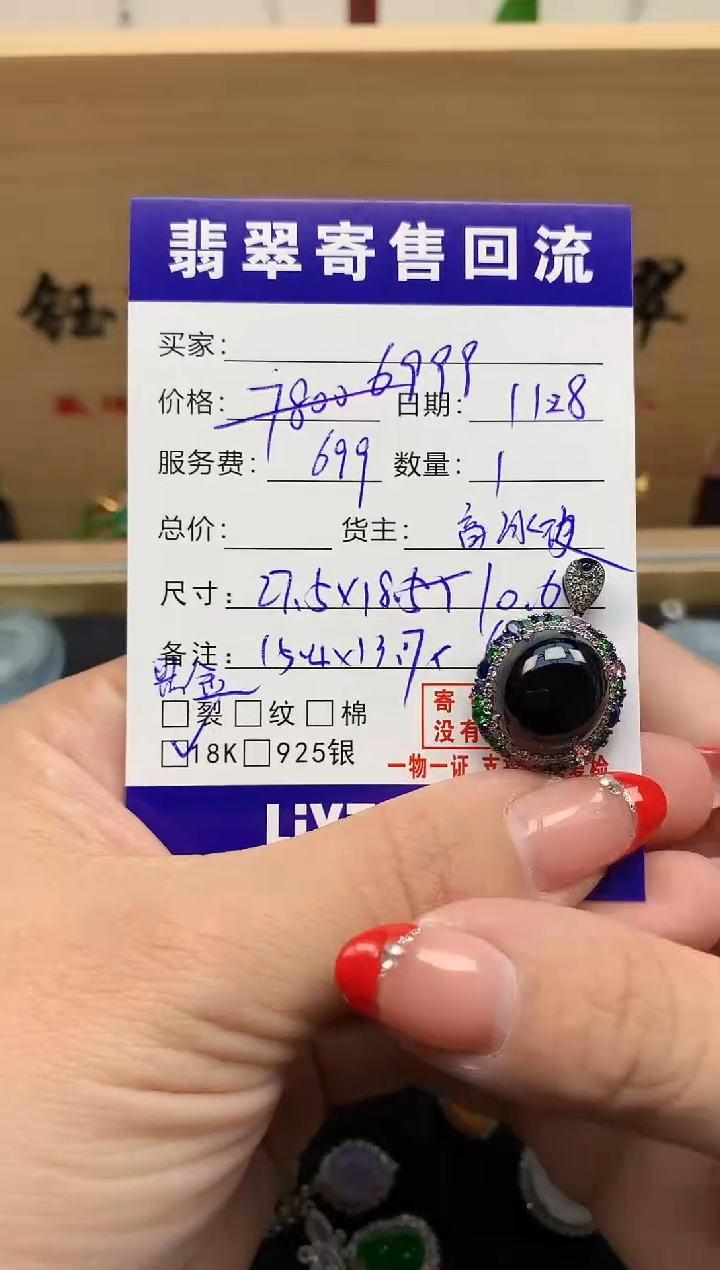 翡翠寄售回流
钰 翠
买家:
价格: 7800 6999 日期: 1128
服务费: 699 数量: 1
总价: 货主: 高冰
尺寸: 27.5×18.5×10.6
备注: 15.4×13.7×
黑金
□裂 □纹 □棉
寄
没有
☑18K □925银
一物一证 支 检
LiYZ